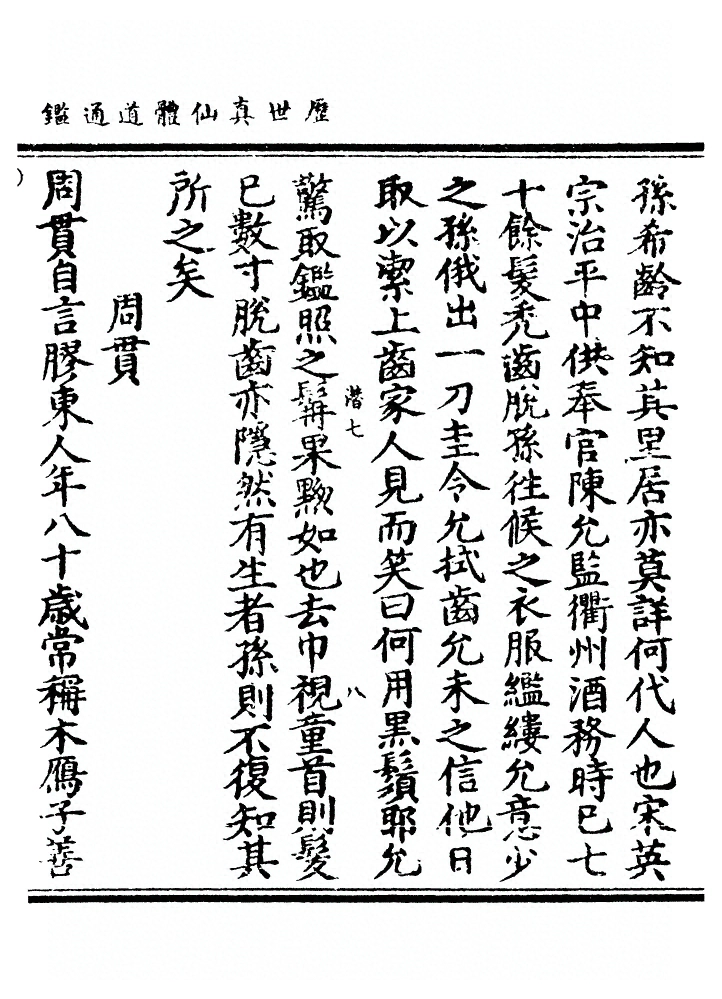 歷世真仙體道通鑑
孫希齡不知其里居亦莫詳何代人也宋英
宗治平中供奉官陳允監衢州酒務時已七
十餘髮禿齒脫孫往候之衣服繿縷允意少
之孫俄出一刀圭令允拭齒允未之信他日
取以潔上齒家人見而笑曰何用黑鬚耶允
驚取鑑照之髯果黳如也去巾視童首則髮
已數寸脫齒亦隱然有生者孫則不復知其
所之矣
潛七
八
周貫
周貫自言膠東人年八十歲常稱木鴈子善